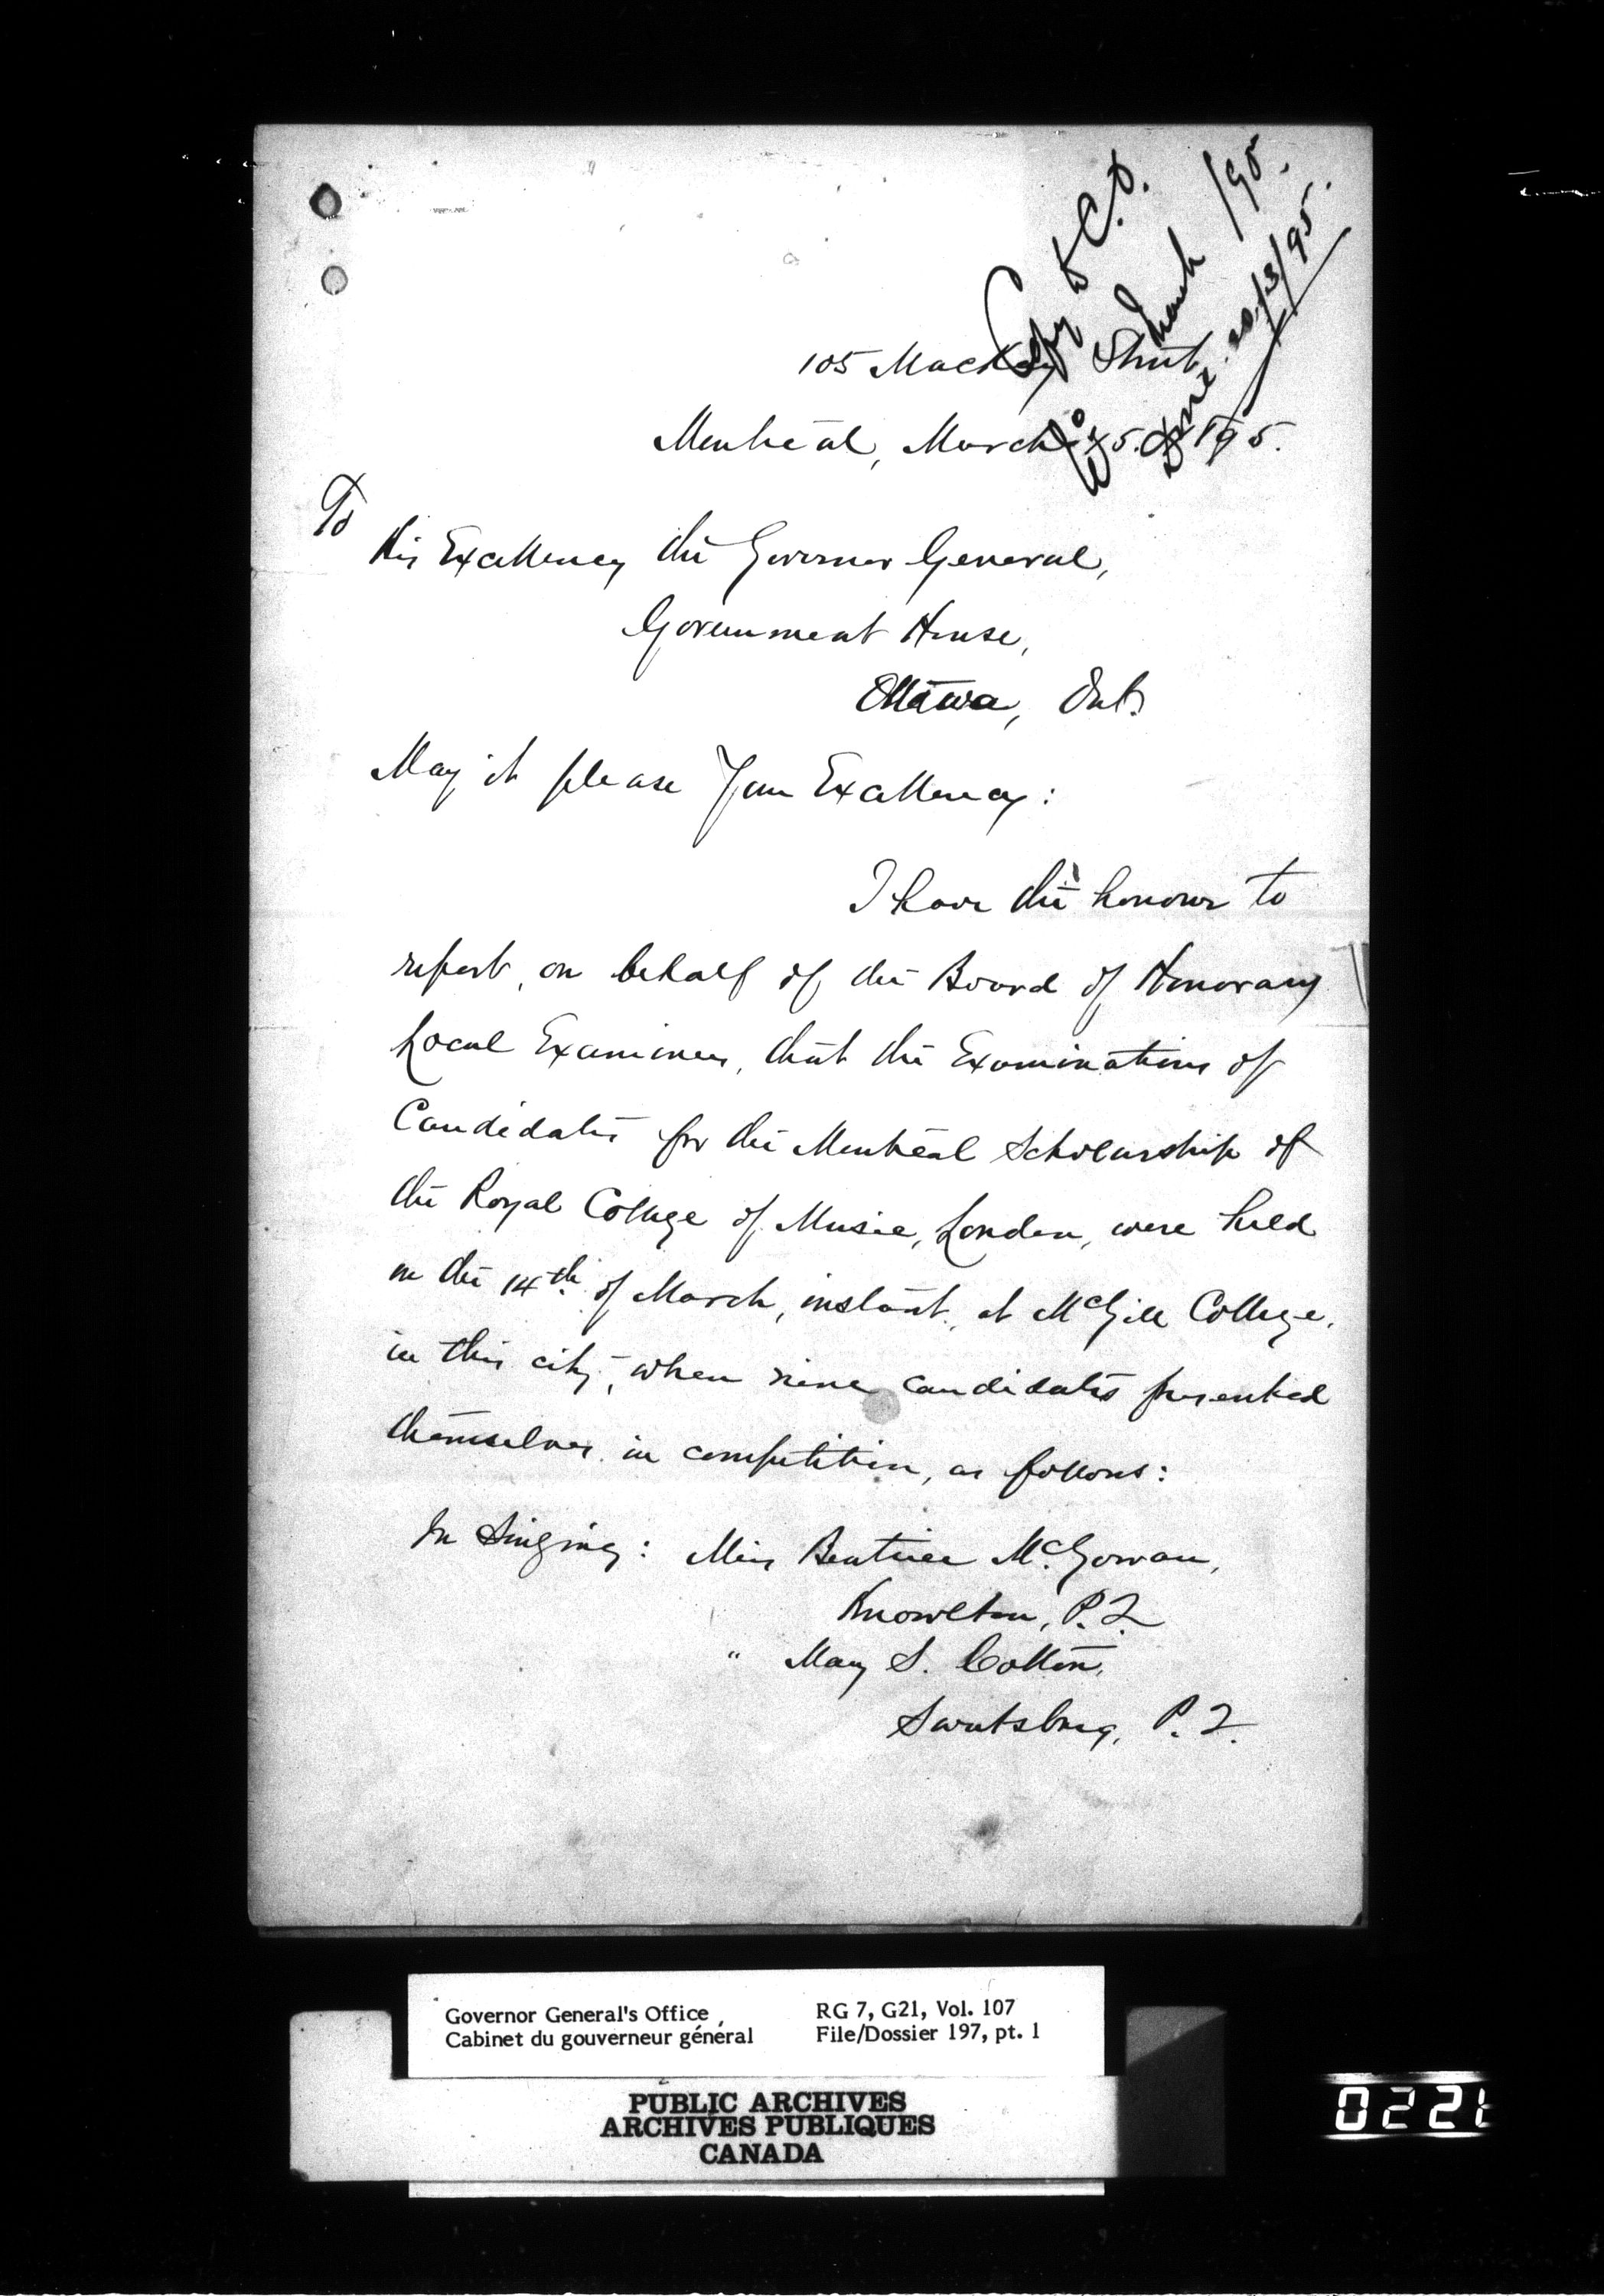 Copy to C.O.
March /95.
Done. 20/3/95.
105 Mackay Street
Montreal, March 15. 1895.
To
His Excellency the Governor General,
Government House,
Ottawa, Ont.
May it please Your Excellency:
I have the honour to
report, on behalf of the Board of Honorary
Local Examiners, that the Examinations of
Candidates for the Montreal Scholarship of
the Royal College of Music, London, were held
on the 14th. of March, instant, at McGill College,
in this city, when nine candidates presented
themselves in competition, as follows:
In Singing: Miss Beatrice McGowan,
Knowlton, P.Q.
" May S. Cotton,
Sweetsburg, P.Q.
Governor General's Office
Cabinet du gouverneur général
RG 7, G21, Vol. 107
File/Dossier 197, pt. 1
PUBLIC ARCHIVES
ARCHIVES PUBLIQUES
CANADA
0221